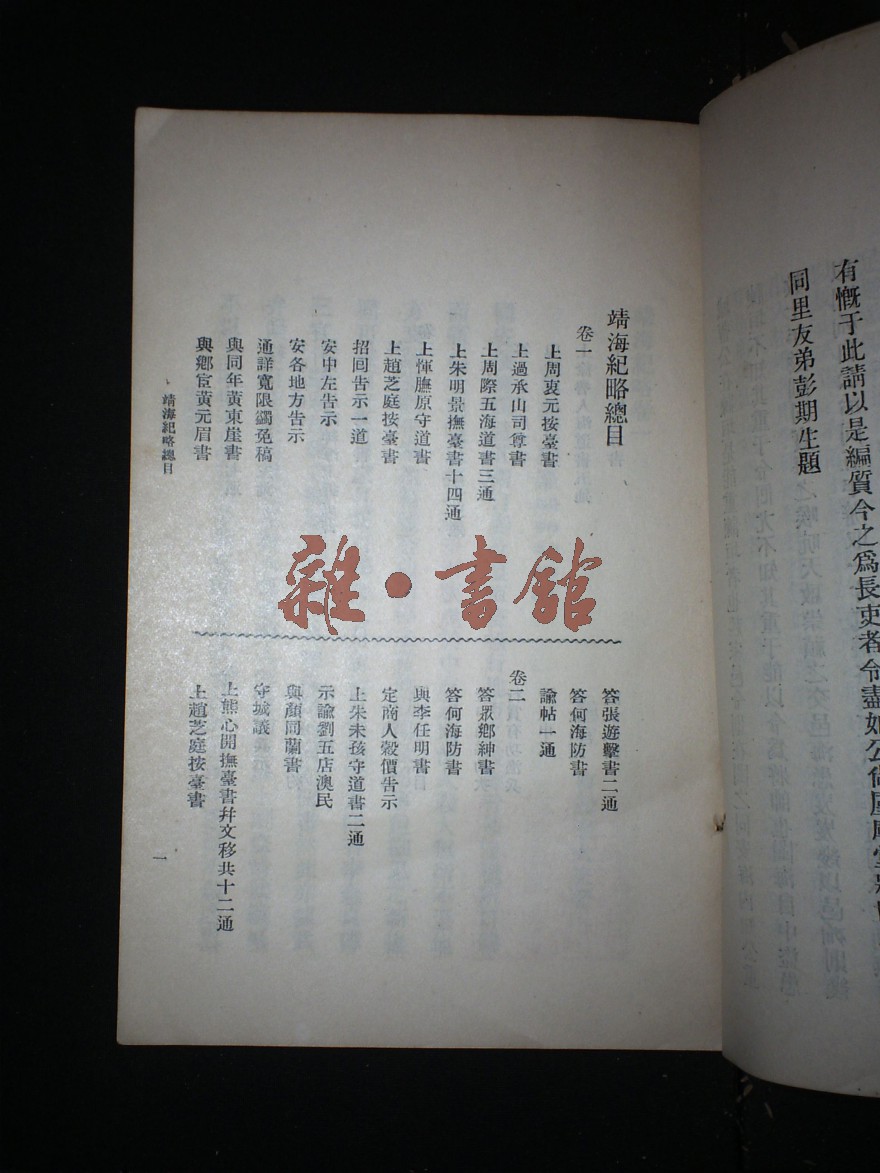 有慨于此請以是編質今之爲長吏者令盡如公尚
同里友弟彭期生題
靖海紀略總目
卷一
上周衷元按臺書
上過承山司尊書
上周際五海道書三通
上朱明景撫臺書十四通
上惲膴原守道書
上趙芝庭按臺書
招回告示一道
安中左告示
安各地方告示
通詳寬限蠲免稿
與同年黃東崖書
與鄉宦黃元眉書
靖海紀略總目
雜·書館
答張遊擊書二通
答何海防書
諭帖一通
卷二
答眾鄉紳書
答何海防書
與李任明書
定商人穀價告示
上朱未孩守道書二通
示諭劉五店澳民
與顏同蘭書
守城議
上熊心開撫臺書幷文移共十二通
上趙芝庭按臺書
一